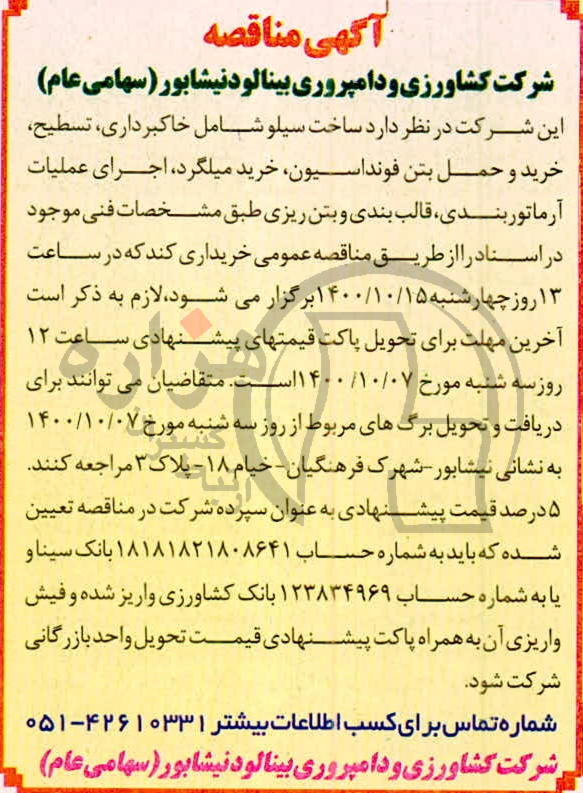 آگهی مناقصه
شرکت کشاورزی و دامپروری بینالود نیشابور (سهامی عام)
این شرکت در نظر دارد ساخت سیلو شامل خاکبرداری، تسطیح،
خرید و حمل بتن فونداسیون، خرید میلگرد، اجرای عملیات
آرماتوربندی، قالب بندی و بتن ریزی طبق مشخصات فنی موجود
در اسناد را از طریق مناقصه عمومی خریداری کند که در ساعت
۱۳ روز چهارشنبه ۱۴۰۰/۱۰/۱۵ برگزار می شود، لازم به ذکر است
آخرین مهلت برای تحویل پاکت قیمتهای پیشنهادی ساعت ۱۲
روز سه شنبه مورخ ۱۴۰۰/۱۰/۰۷ است. متقاضیان می توانند برای
دریافت و تحویل برگ های مربوط از روز سه شنبه مورخ ۱۴۰۰/۱۰/۰۷
به نشانی نیشابور -شهرک فرهنگیان- خیام ۱۸- پلاک ۳ مراجعه کنند.
۵ درصد قیمت پیشنهادی به عنوان سپرده شرکت در مناقصه تعیین
شده که باید به شماره حساب ۱۸۱۸۱۸۲۱۸۰۸۶۴۱ بانک سینا و
یا به شماره حساب ۱۲۳۸۳۴۹۶۹ بانک کشاورزی واریز شده و فیش
واریزی آن به همراه پاکت پیشنهادی قیمت تحویل واحد بازرگانی
شرکت شود.
شماره تماس برای کسب اطلاعات بیشتر ۴۲۶۱۰۳۳۱-۰۵۱
شرکت کشاورزی و دامپروری بینالود نیشابور (سهامی عام)
هزاره